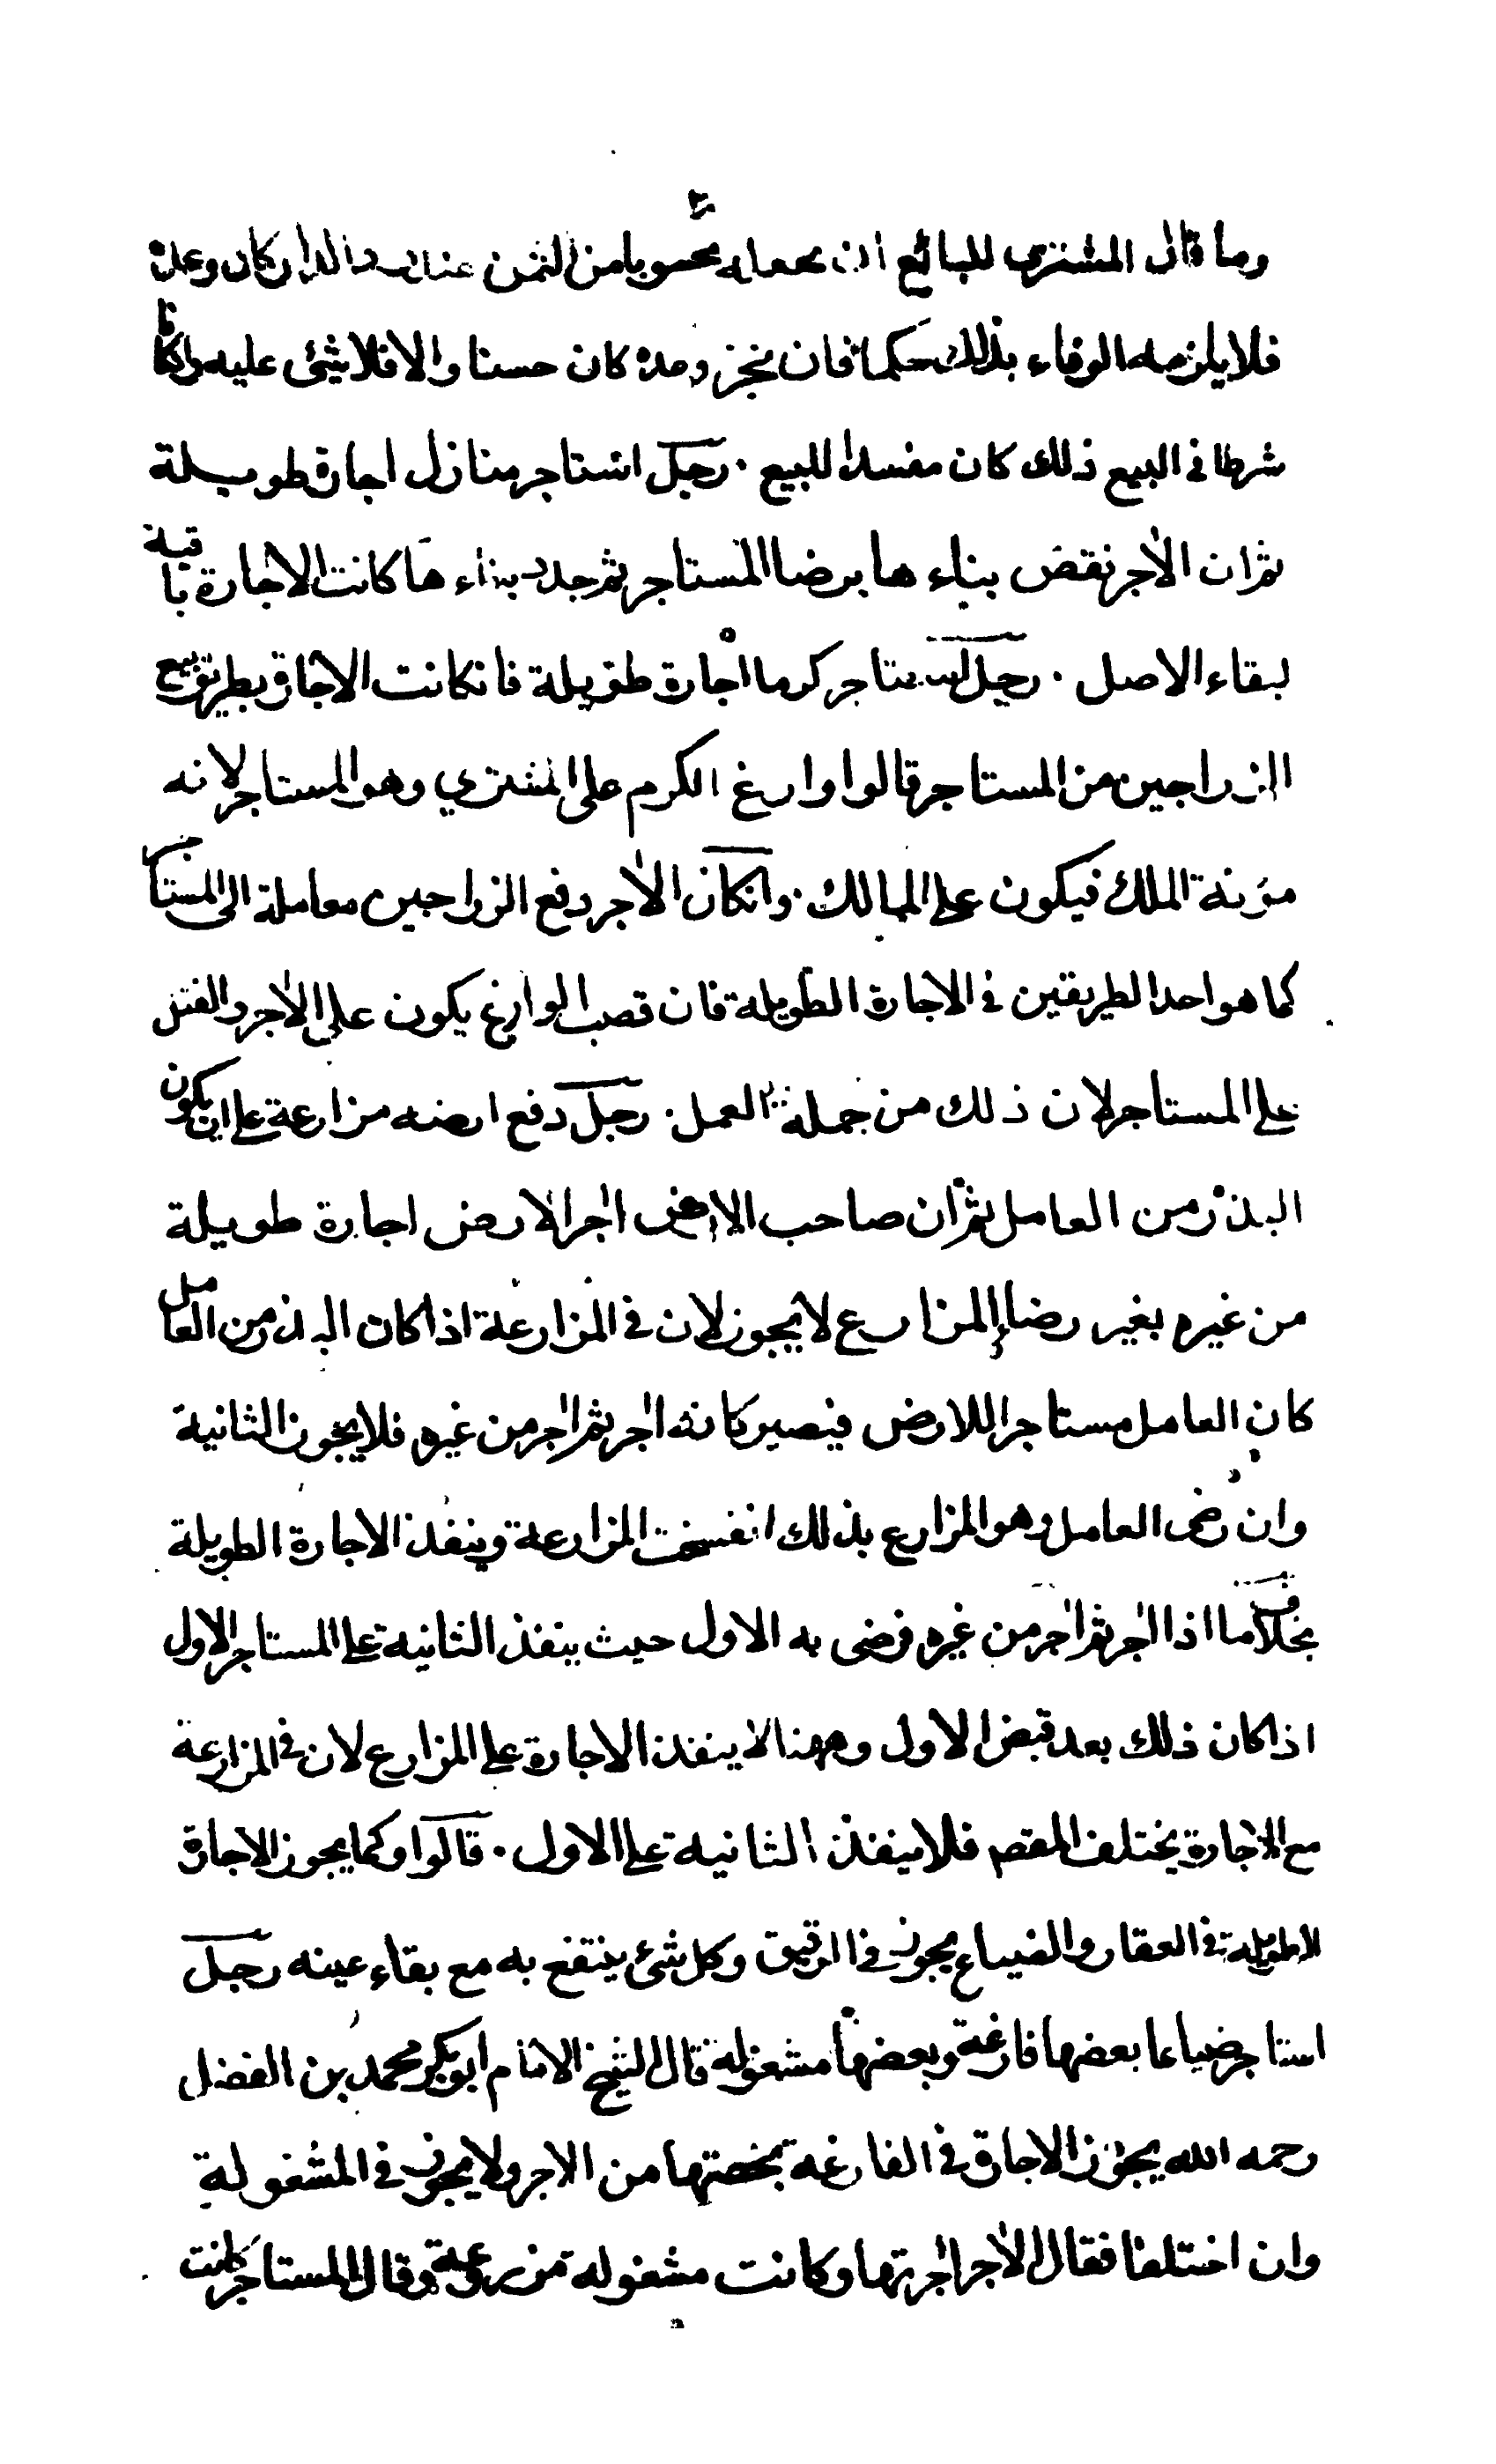 وما قال المشتري للبائع ان يجعله محسوبا من الثمن عند رد الدار كان وعدا
فلا يلزمه الوفاء بذلك حكما فان نجز وعده كان حسنا والا فلا شئ عليه وان كا
شرطا في البيع ذلك كان مفسدا للبيع . رجل استاجر منازل اجارة طويلة
ثم ان الآجر نقض بناء ها برضا المستاجر ثم جدد بناء ها كانت الاجارة باقية
لبقاء الاصل . رجل استاجر كرما اجارة طويلة فانكانت الاجارة بطريق بيع
الزراجين من المستاجر قالوا وارغ الكرم على المشتري وهو المستاجر لانه
مؤنة الملك فيكون على المالك . وانكان الآجر دفع الزراجين معاملة الى المستاجر
كما هو احد الطريقين في الاجارة الطويلة فان قصب الوارغ يكون على الآجر والفتل
على المستاجر لان ذلك من جملة العمل . رجل دفع ارضه مزارعة على ان يكون
البذر من العامل ثم ان صاحب الارض آجر الارض اجارة طويلة
من غيره بغير رضا المزارع لا يجوز لان في المزارعة اذا كان البذر من العامل
كان العامل مستاجرا للارض فيصير كانه آجر ثم آجر من غيره فلا يجوز الثانية
وان رضى العامل وهو المزارع بذلك انفسخت المزارعة وينفذ الاجارة الطويلة
بخلاف ما اذا آجر ثم آجر من غيره فرضى به الاول حيث ينفذ الثانية على المستاجر الاول
اذا كان ذلك بعد قبض الاول وههنا لا ينفذ الاجارة على المزارع لان في المزارعة
مع الاجارة يختلف المقصد فلا ينفذ الثانية على الاول . قالوا وكما يجوز الاجارة
الطويلة في العقار والضياع يجوز في الرقيق وكل شئ ينتفع به مع بقاء عينه رجل
استاجر ضياعا بعضها فارغة وبعضها مشغولة قال الشيخ الامام ابو بكر محمد بن الفضل
رحمه الله يجوز الاجارة في الفارغة بحصتها من الاجر ولا يجوز في المشغولة
وان اختلفا فقال الآجر آجرتها وكانت مشغولة مزروعة وقال المستاجر كانت